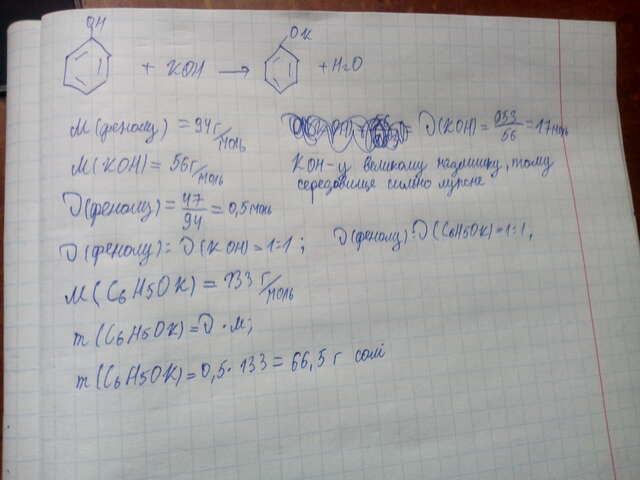 OH
OK
+ KOH → + H2O
M(фенолу) = 94 г/моль
ν(KOH) = 953/56 = 17 моль
M(KOH) = 56 г/моль
KOH - у великому надлишку, тому
середовище сильно лужне
ν(фенолу) = 47/94 = 0,5 моль
ν(фенолу) : ν(KOH) = 1:1; ν(фенолу) : ν(C6H5OK) = 1:1,
M(C6H5OK) = 133 г/моль
m(C6H5OK) = ν · M;
m(C6H5OK) = 0,5 · 133 = 66,5 г солі